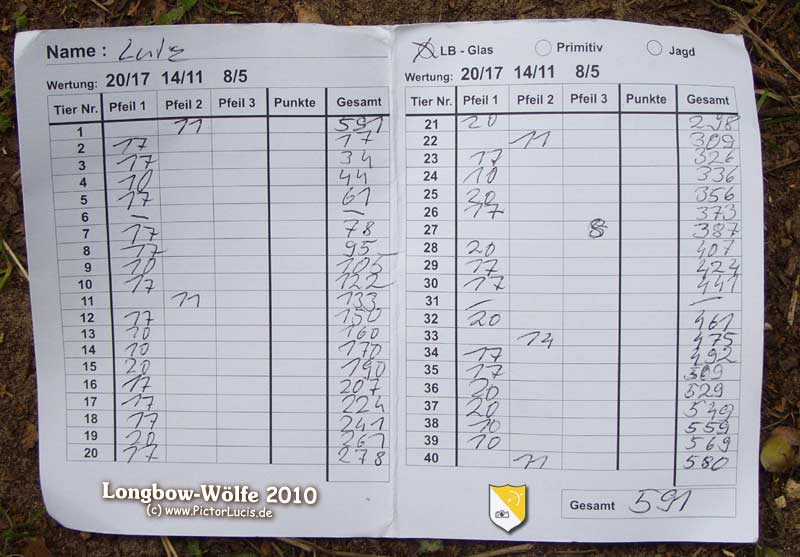 Name : Lutz
Wertung: 20/17 14/11 8/5
Tier Nr. Pfeil 1 Pfeil 2 Pfeil 3 Punkte Gesamt
1 11 591
2 17 17
3 17 34
4 10 44
5 17 61
6 – –
7 17 78
8 17 95
9 10 105
10 17 122
11 11 133
12 17 150
13 10 160
14 10 170
15 20 190
16 17 207
17 17 224
18 17 241
19 20 261
20 17 278
LB - Glas Primitiv Jagd
Wertung: 20/17 14/11 8/5
Tier Nr. Pfeil 1 Pfeil 2 Pfeil 3 Punkte Gesamt
21 20 298
22 11 309
23 17 326
24 10 336
25 20 356
26 17 373
27 8 387
28 20 407
29 17 424
30 17 441
31 – –
32 20 461
33 14 475
34 17 492
35 17 509
36 20 529
37 20 549
38 10 559
39 10 569
40 11 580
Gesamt 591
Longbow-Wölfe 2010
(c) www.PictorLucis.de